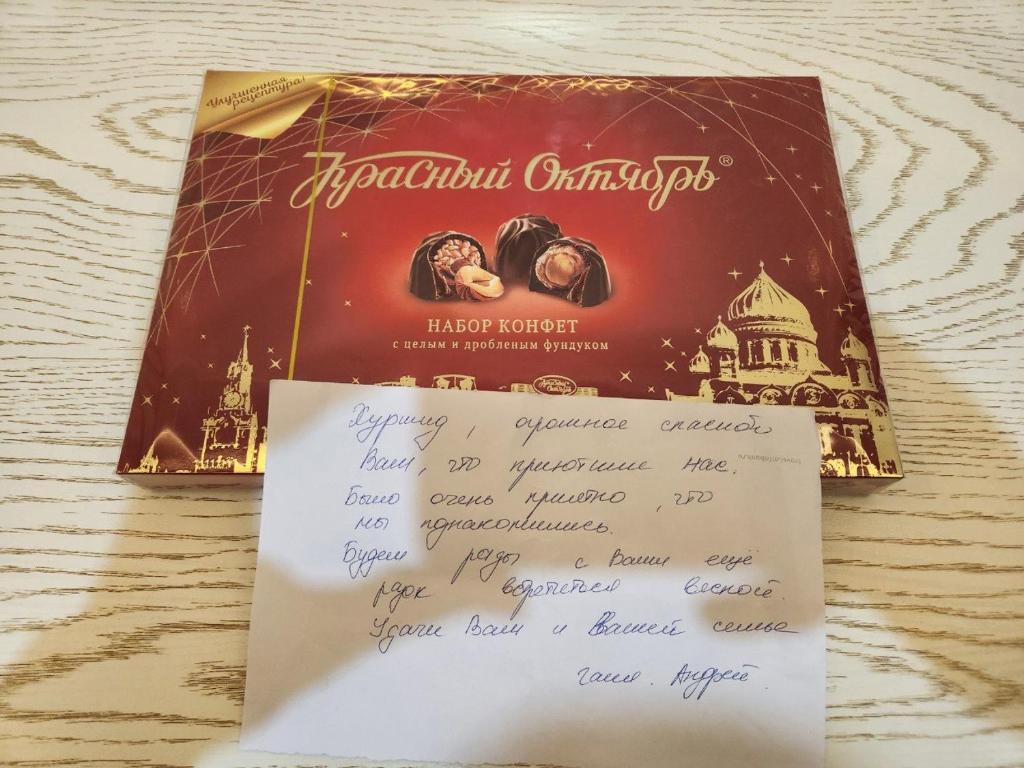 Улучшенная
рецептура!
Красный Октябрь®
НАБОР КОНФЕТ
с целым и дробленым фундуком
Красный
Октябрь
Хуршид, огромное спасибо
Вам, что приютили нас.
Было очень приятно, что
мы познакомились.
Будем рады с Вами ещё
разок встретиться весной.
Удачи Вам и Вашей семье
Галя. Андрей